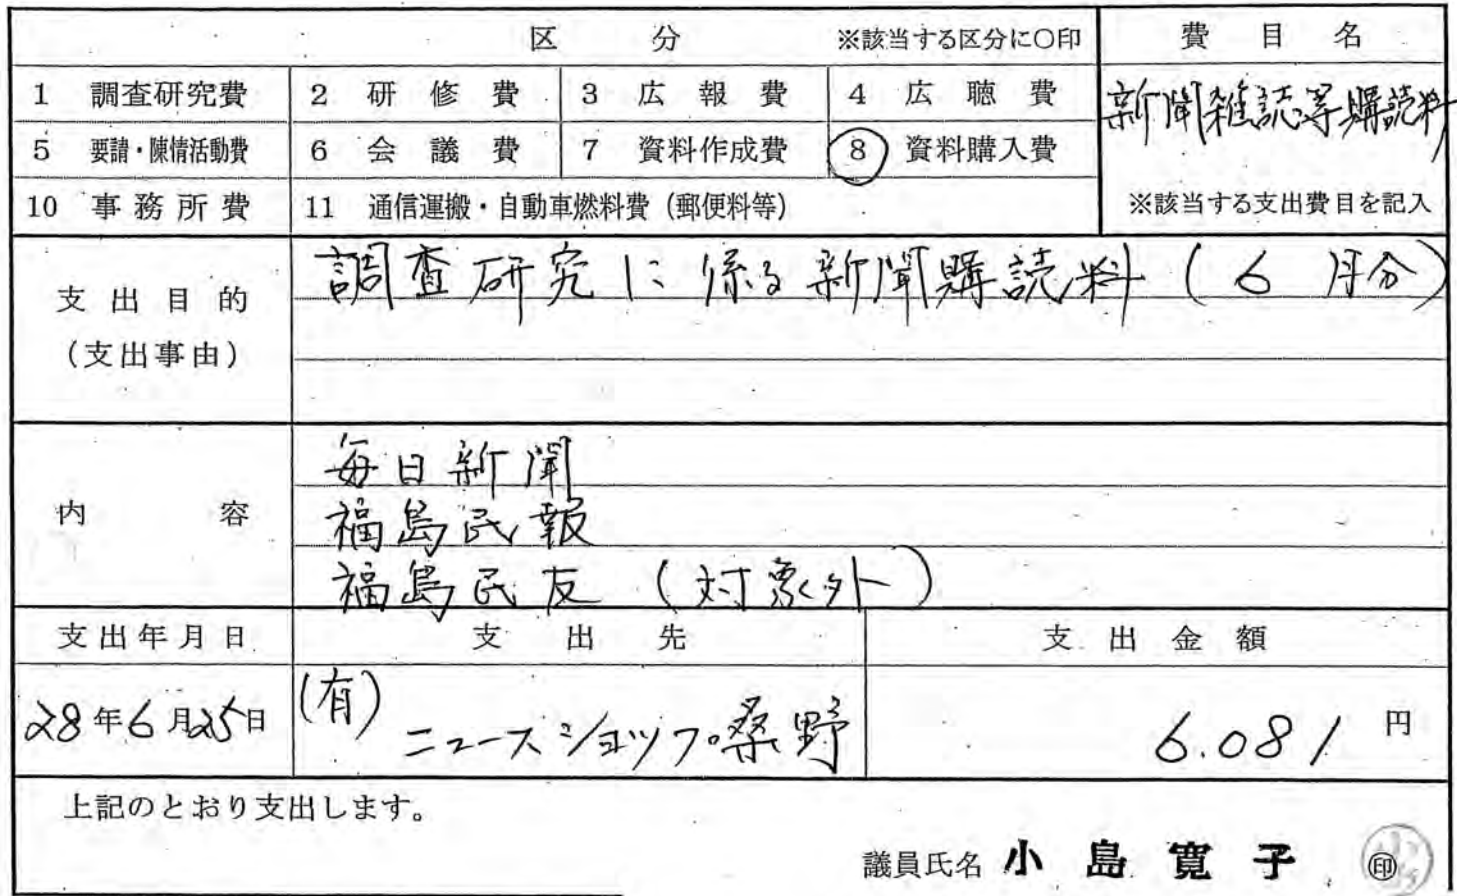 区 分 ※該当する区分に○印 費 目 名
1 調査研究費 2 研 修 費 3 広 報 費 4 広 聴 費 新聞雑誌等購読料
5 要請・陳情活動費 6 会 議 費 7 資料作成費 8 資料購入費
10 事 務 所 費 11 通信運搬・自動車燃料費（郵便料等） ※該当する支出費目を記入
支 出 目 的 調査研究に係る新聞購読料（6 月分）
（支出事由）
毎日新聞
内 容 福島民報
福島民友（対象外）
支出年月日 支 出 先 支 出 金 額
28年6月25日 (有)ニュースショップ桑野 6.081 円
上記のとおり支出します。
議員氏名 小 島 寛 子 ㊞